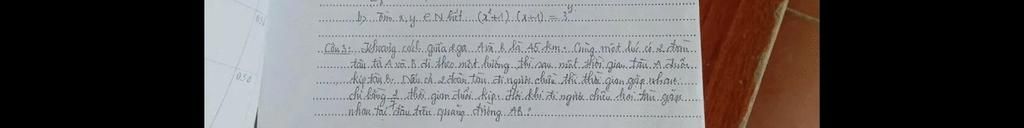 b) Tìm x, y ∈ N biết (x²+1).(x+1) = 3^y
Câu 3: Khoảng cách giữa 2 ga A và B là 45 km. Cùng một lúc có 2 đoàn
tàu từ A và B đi theo một hướng thì sau một thời gian tàu A đuổi
kịp tàu B. Nếu cả 2 đoàn tàu đi ngược chiều thì thời gian gặp nhau
chỉ bằng thời gian đuổi kịp. Hỏi khi đi ngược chiều hai tàu gặp
nhau tại đâu trên quãng đường AB?